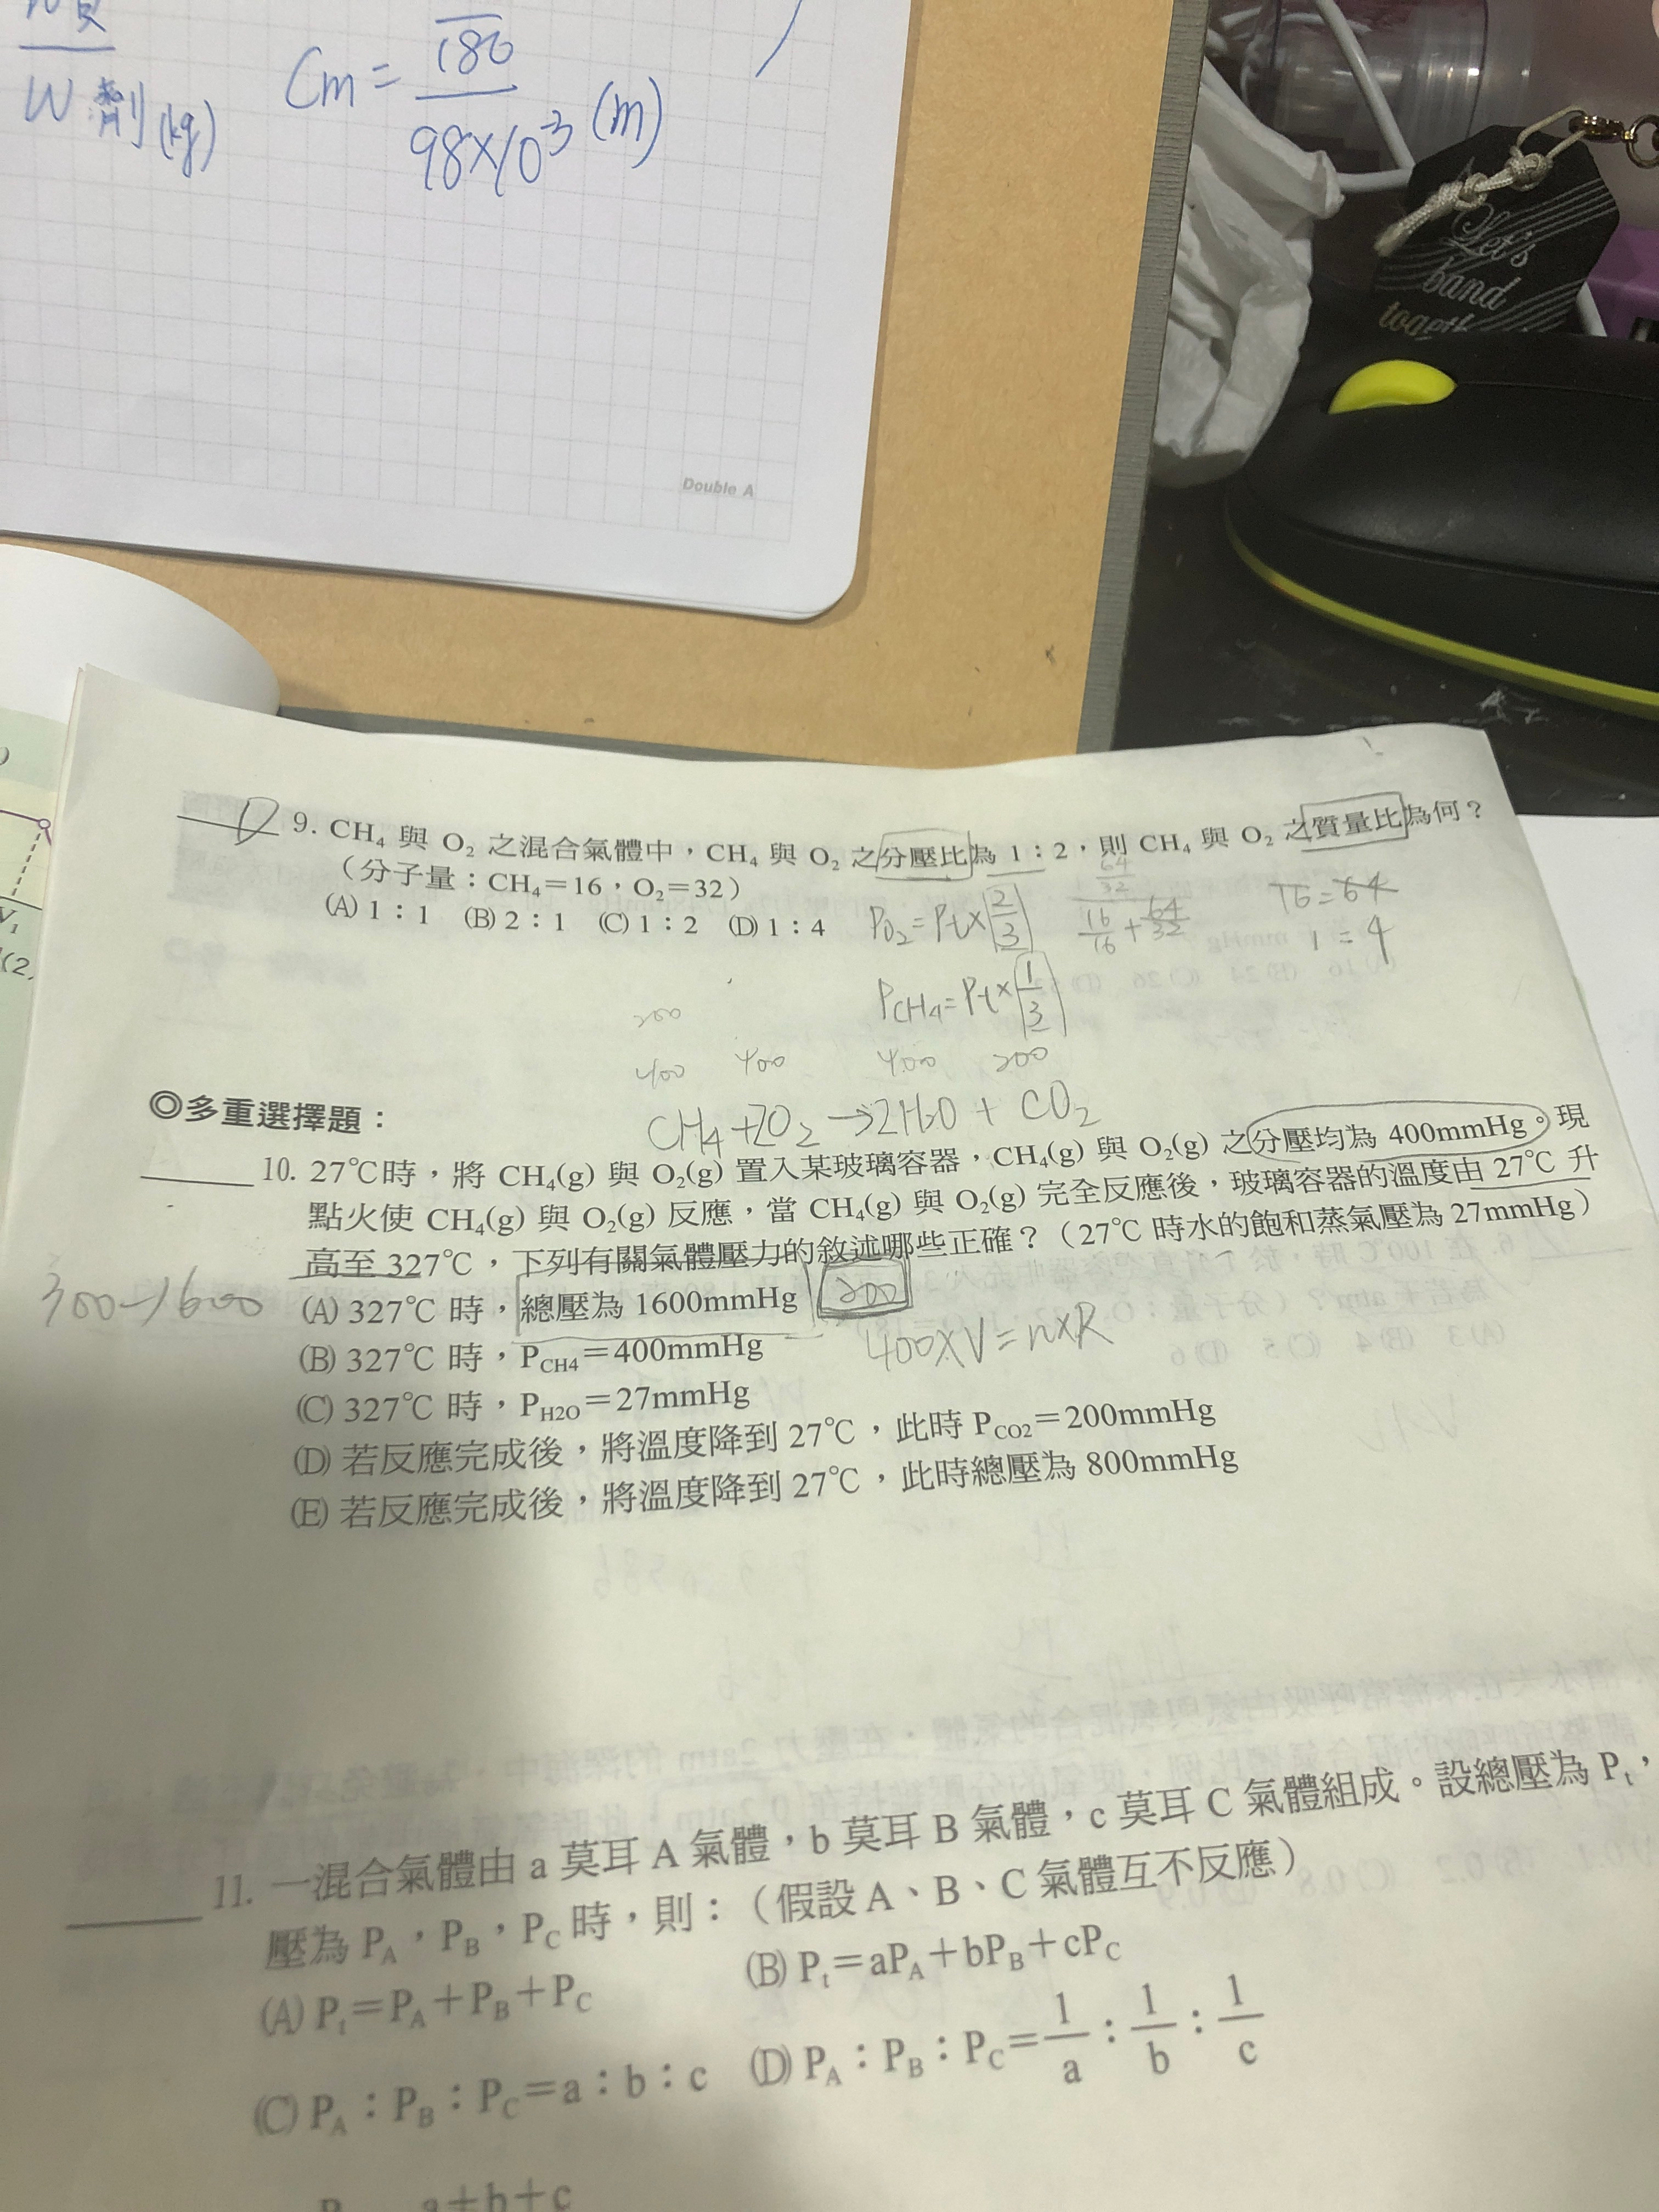 W劑(kg)
Cm = 180 / 98×10⁻³ (m)
Let's
band
Double A
D 9. CH₄ 與 O₂ 之混合氣體中，CH₄ 與 O₂ 之分壓比為 1：2，則 CH₄ 與 O₂ 之質量比為何？
（分子量：CH₄＝16，O₂＝32）
(A) 1：1 (B) 2：1 (C) 1：2 (D) 1：4
PO₂ = Pt × 2/3
64/32
16/16 + 64/32
16 = 64
1 = 4
PCH₄ = Pt × 1/3
200
400 400 400 200
CH₄ + 2O₂ → 2H₂O + CO₂
◎多重選擇題：
10. 27℃時，將 CH₄(g) 與 O₂(g) 置入某玻璃容器，CH₄(g) 與 O₂(g) 之分壓均為 400mmHg。現
點火使 CH₄(g) 與 O₂(g) 反應，當 CH₄(g) 與 O₂(g) 完全反應後，玻璃容器的溫度由 27℃ 升
高至 327℃，下列有關氣體壓力的敘述哪些正確？（27℃ 時水的飽和蒸氣壓為 27mmHg）
300→600
(A) 327℃ 時，總壓為 1600mmHg
200
(B) 327℃ 時，PCH4＝400mmHg
400×V = n×R
(C) 327℃ 時，PH2O＝27mmHg
(D) 若反應完成後，將溫度降到 27℃，此時 PCO2＝200mmHg
(E) 若反應完成後，將溫度降到 27℃，此時總壓為 800mmHg
11. 一混合氣體由 a 莫耳 A 氣體，b 莫耳 B 氣體，c 莫耳 C 氣體組成。設總壓為 Pt，
壓為 PA，PB，PC 時，則：（假設 A、B、C 氣體互不反應）
(A) Pt＝PA＋PB＋PC (B) Pt＝aPA＋bPB＋cPC
(C) PA：PB：PC＝a：b：c (D) PA：PB：PC＝1/a：1/b：1/c
a＋b＋c